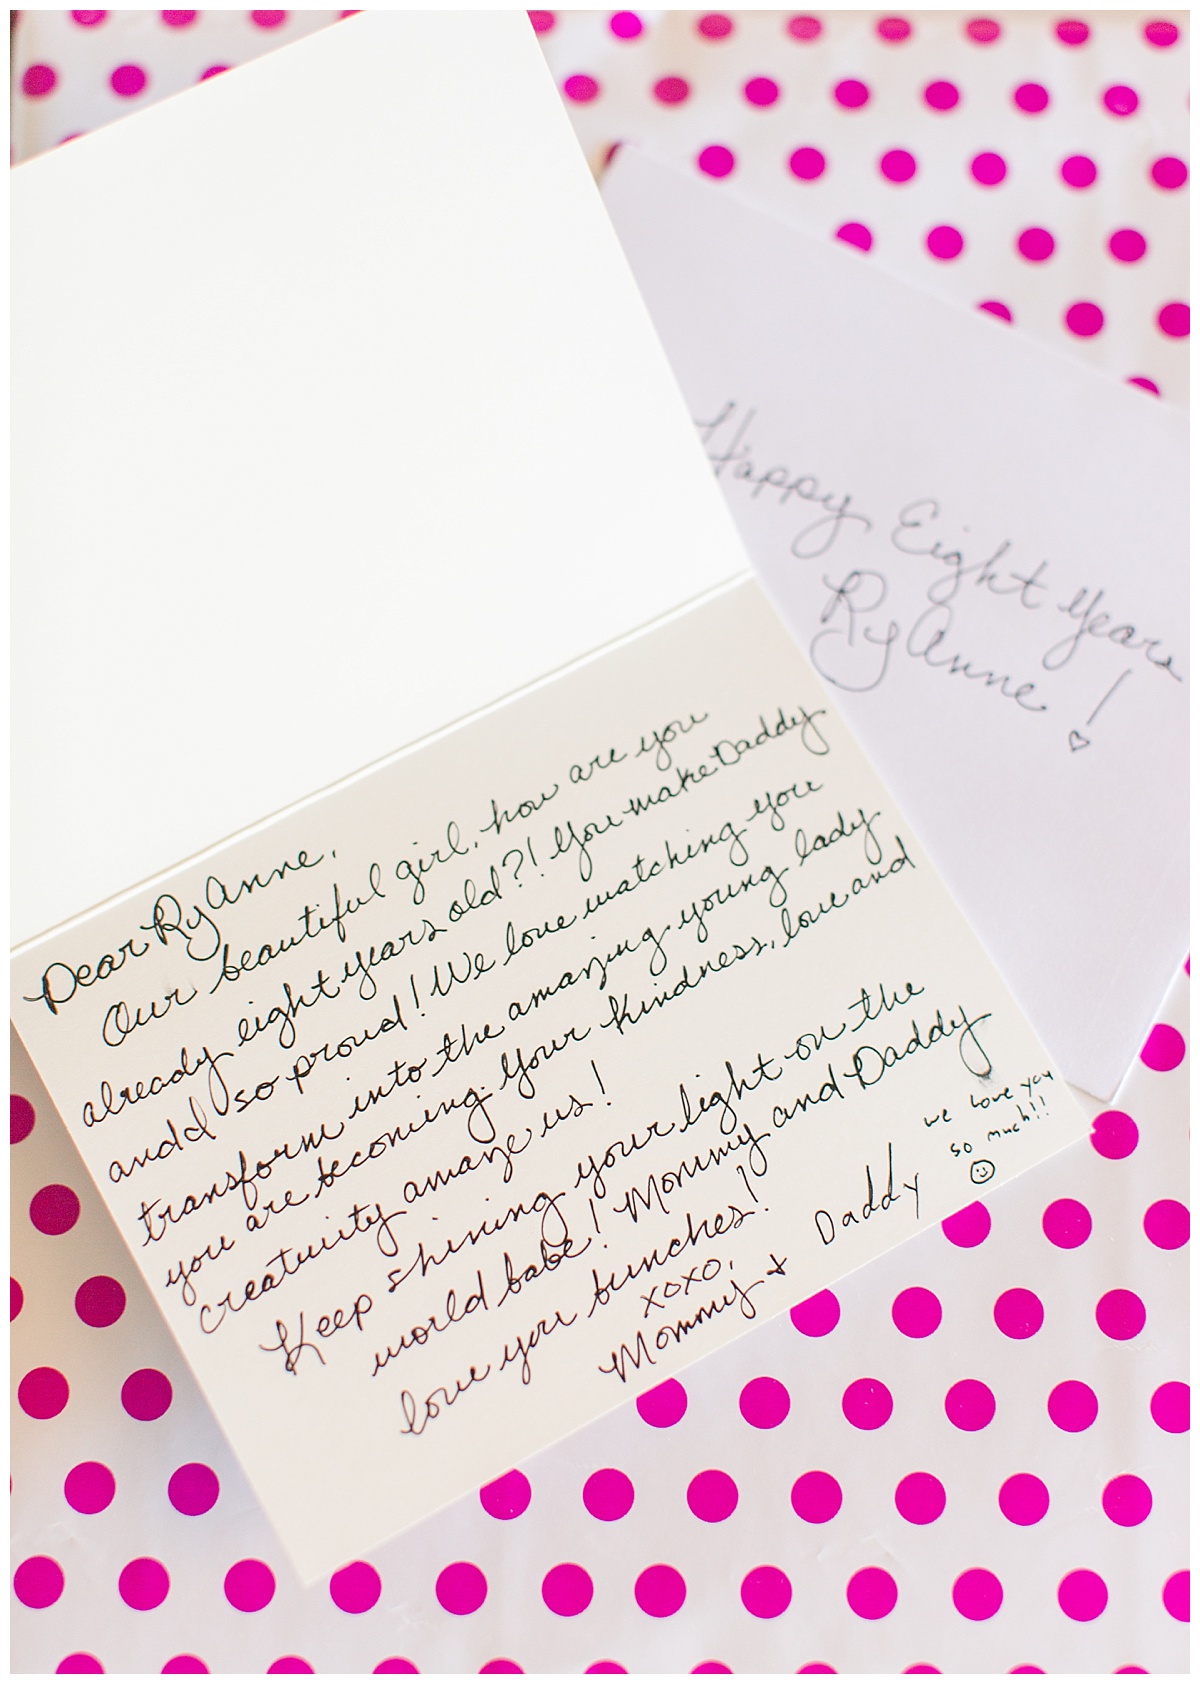 Happy Eight Years
RyAnne!
Dear RyAnne,
Our beautiful girl, how are you
already eight years old?! You make Daddy
and I so proud! We love watching you
transform into the amazing young lady
you are becoming. Your kindness, love and
creativity amaze us!
Keep shining your light on the
world babe! Mommy and Daddy
love you bunches!
xoxo,
Mommy + Daddy
we love you
so much!!